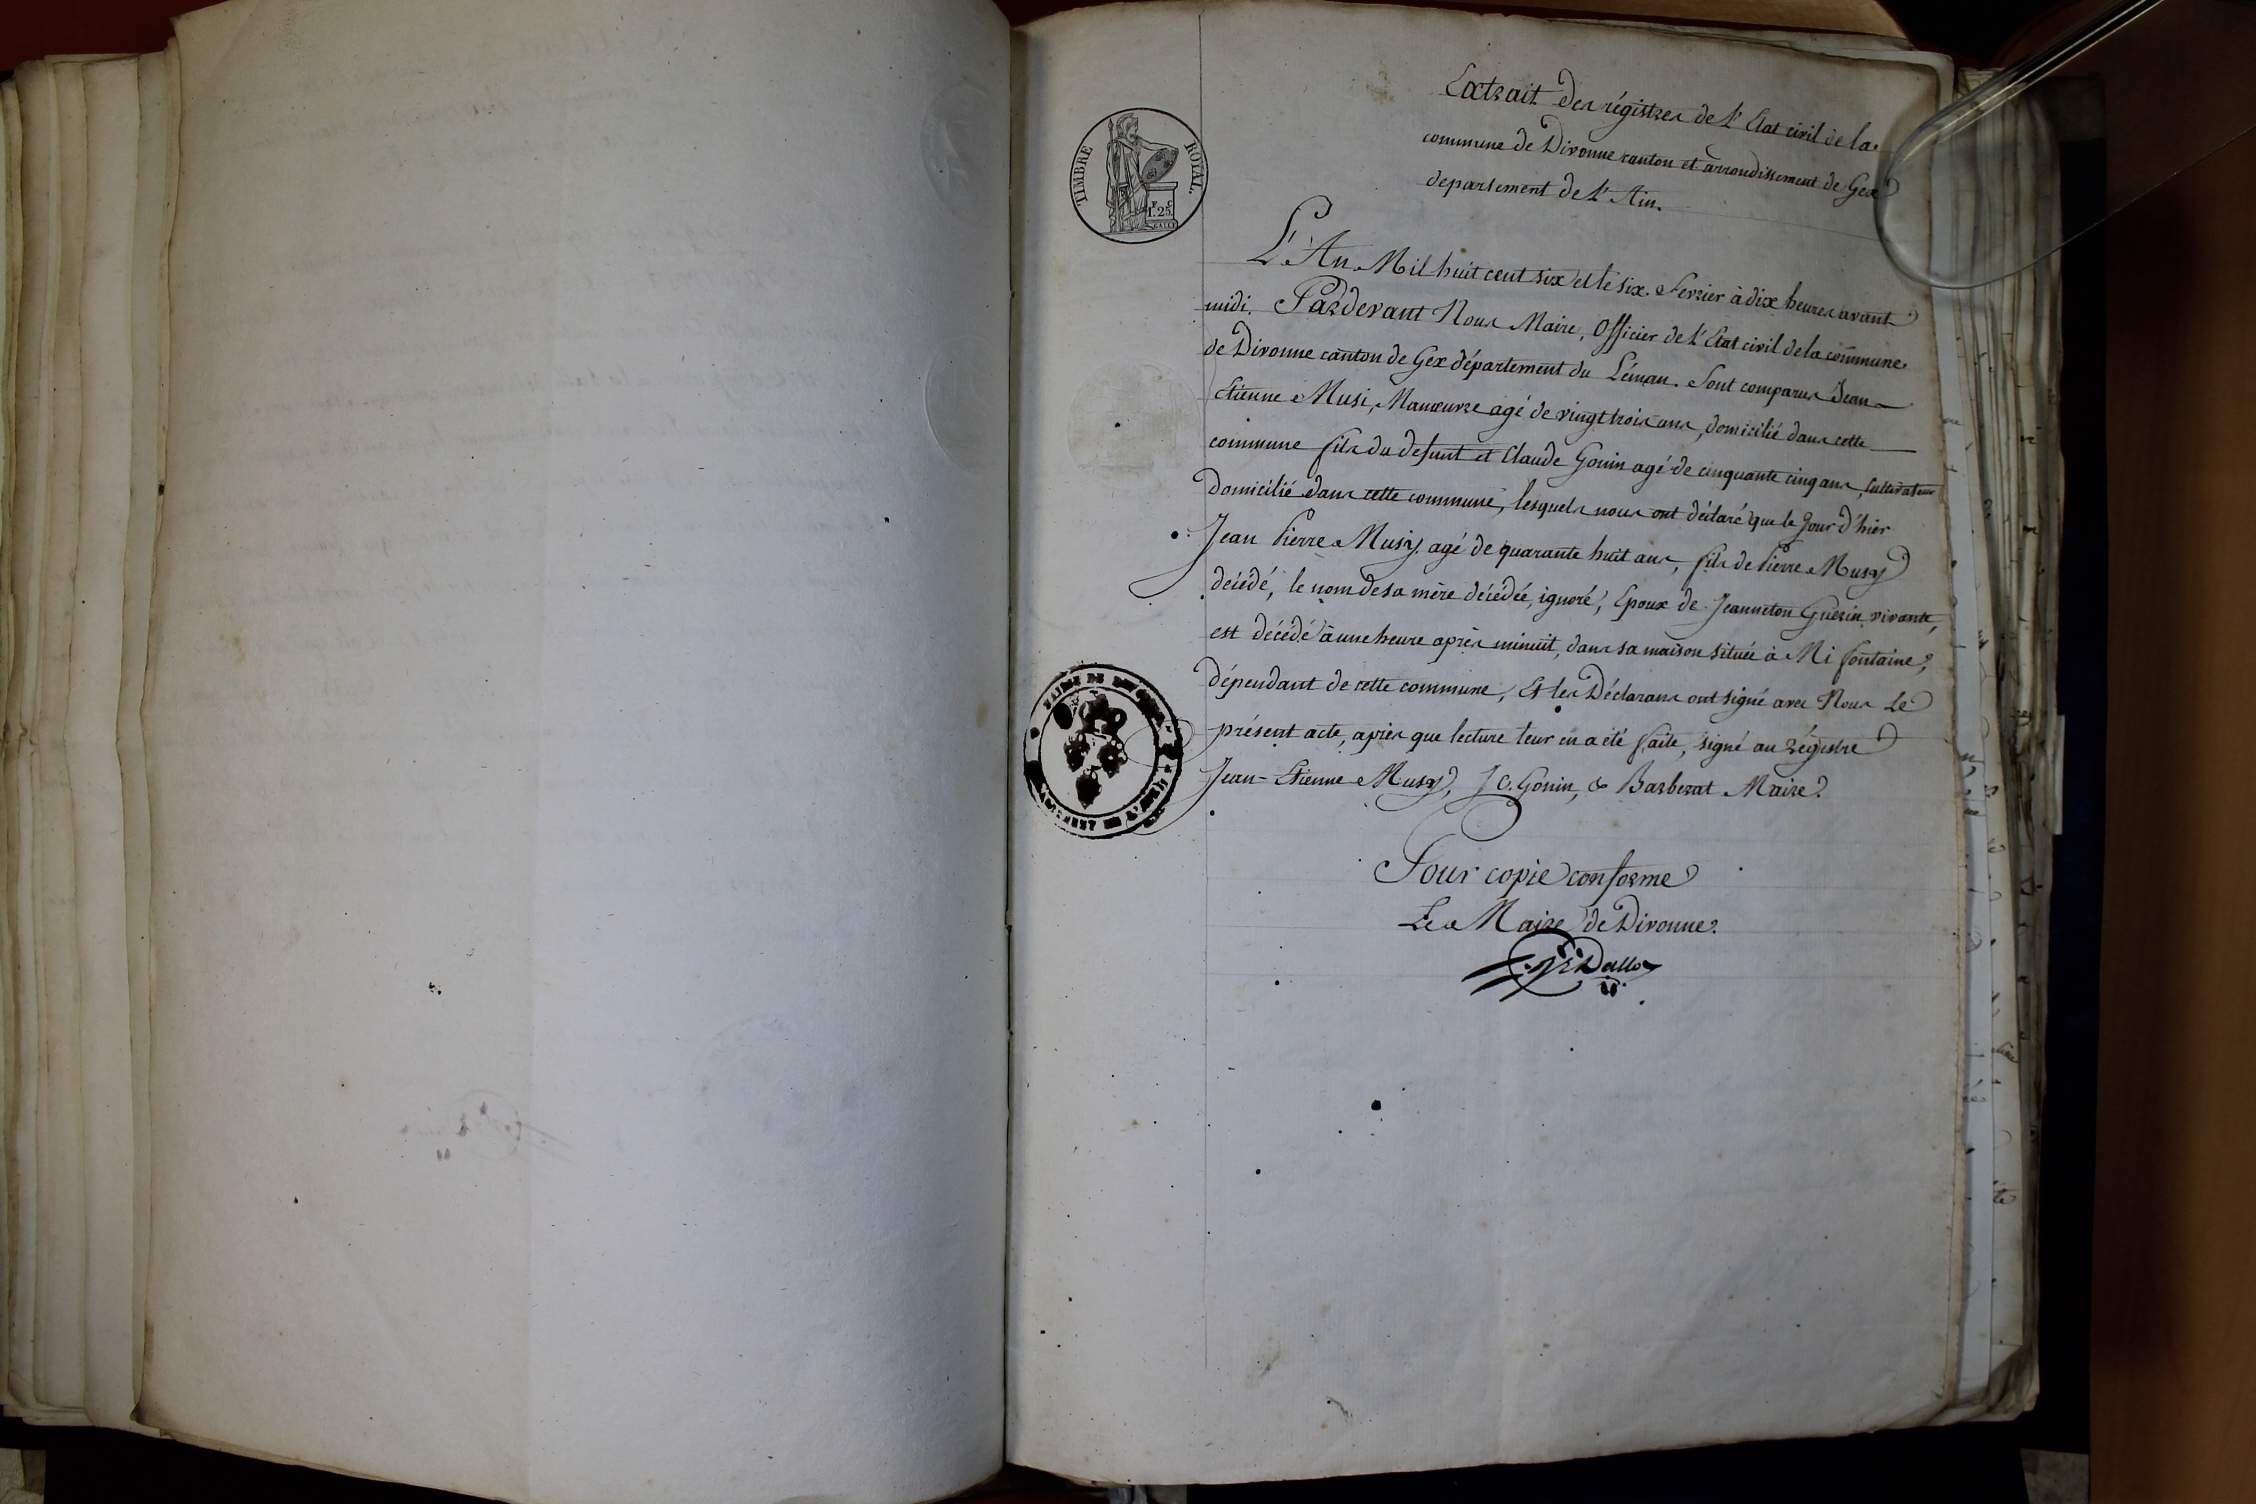 Extrait des régistres de l'Etat civil de la
commune de Divonne canton et arrondissement de Gex
departement de l'Ain.
TIMBRE ROYAL.
F. C.
1.25.
L'An Mil huit cent six et le six Fevrier à dix heures avant
midi. Pardevant Nous Maire, Officier de l'Etat civil de la commune
de Divonne canton de Gex département du Léman. Sont comparus Jean
Etienne Musi, Manœuvre agé de vingt trois ans, domicilié dans cette
commune fils du defunt et Claude Gonin agé de cinquante cinq ans, Cultivateur
Domicilié dans cette commune, lesquels nous ont déclaré que le jour d'hier
Jean Pierre Musy agé de quarante huit ans, fils de Pierre Musy
décédé, le nom de sa mère décédée, ignoré, Epoux de Jeanneton Guerin vivante,
est décédé à une heure après minuit, dans sa maison située à Mi fontaine,
dépendant de cette commune, Et les Déclarans ont signé avec Nous Le
MAIRIE DE
présent acte, après que lecture leur en a été faite, signé au régistre
Jean-Etienne Musy, J C. Gonin, & Barberat Maire.
Pour copie conforme
Le Maire de Divonne.